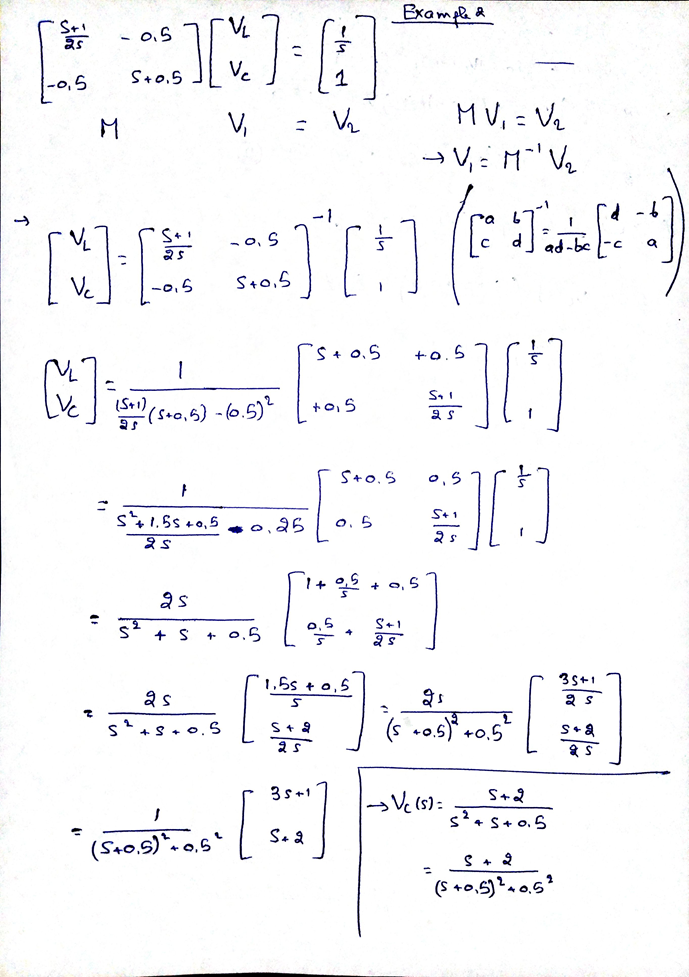 Example 2
[ (s+1)/2s   - 0.5 ; -0.5   s+0.5 ] [ V_L ; V_C ] = [ 1/s ; 1 ]
M   V₁ = V₂
M V₁ = V₂
→ V₁ = M⁻¹ V₂
→ [ V_L ; V_C ] = [ (s+1)/2s   -0.5 ; -0.5   s+0.5 ]⁻¹ [ 1/s ; 1 ]   ( [ a b ; c d ]⁻¹ = 1/(ad-bc) [ d -b ; -c a ] )
[ V_L ; V_C ] = 1 / ( (s+1)/2s (s+0.5) - (0.5)² ) [ s + 0.5   +0.5 ; +0.5   (s+1)/2s ] [ 1/s ; 1 ]
= 1 / ( (s²+1.5s+0.5)/2s - 0.25 ) [ s+0.5   0.5 ; 0.5   (s+1)/2s ] [ 1/s ; 1 ]
= 2s / (s² + s + 0.5) [ 1 + 0.5/s + 0.5 ; 0.5/s + (s+1)/2s ]
= 2s / (s² + s + 0.5) [ (1.5s + 0.5)/s ; (s+2)/2s ] = 2s / ((s+0.5)² + 0.5²) [ (3s+1)/2s ; (s+2)/2s ]
= 1 / ((s+0.5)² + 0.5²) [ 3s+1 ; s+2 ]
→ V_C(s) = (s+2) / (s² + s + 0.5)
= (s + 2) / ((s+0.5)² + 0.5²)